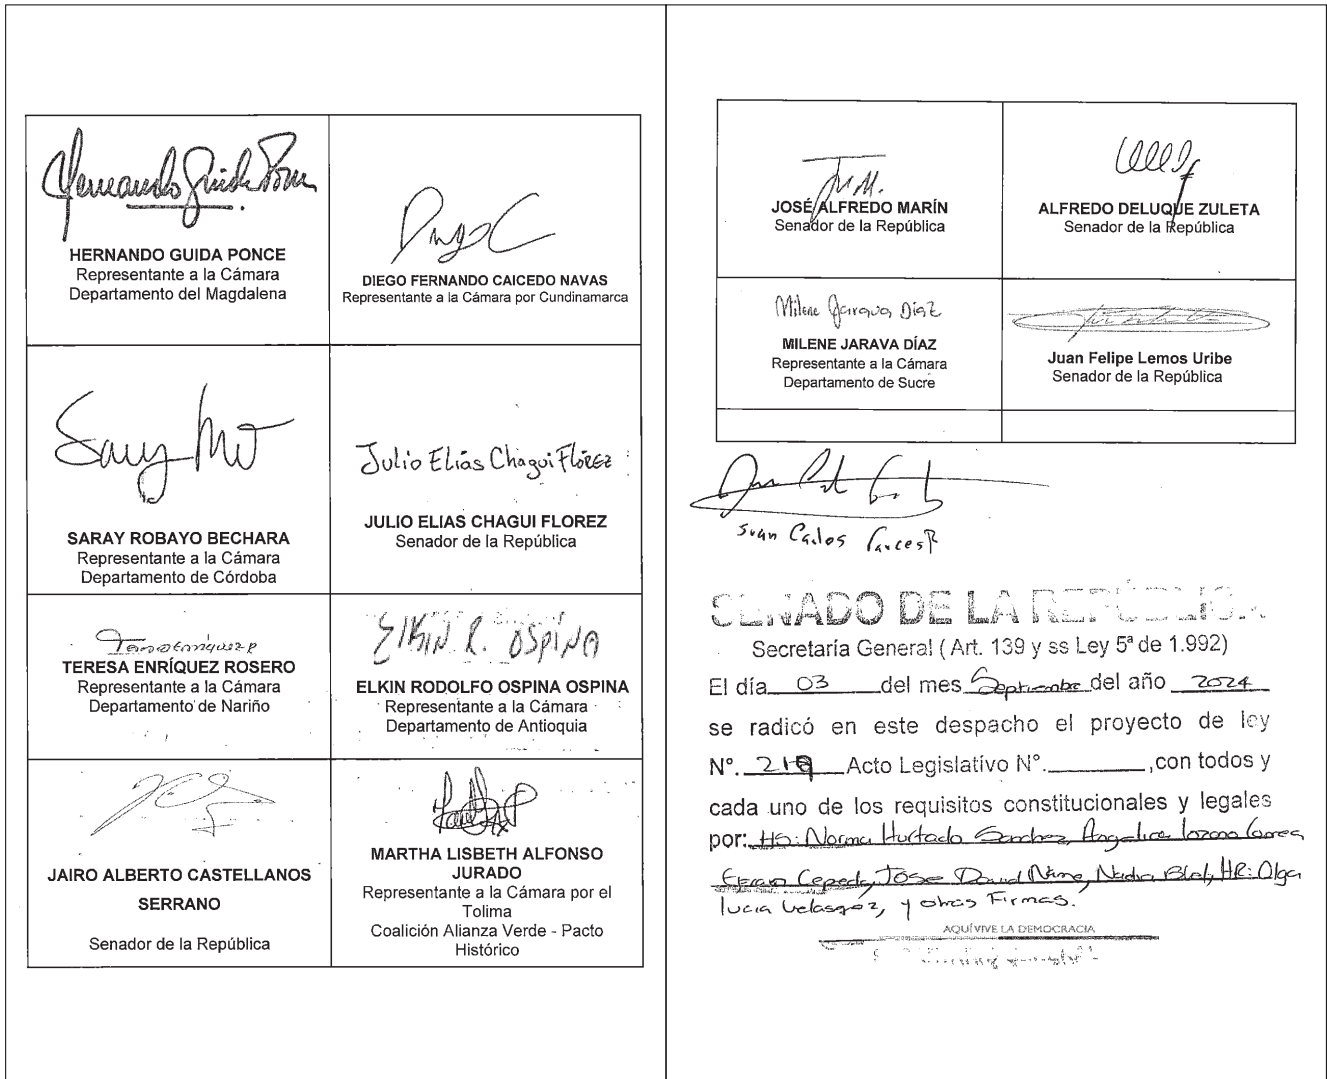 Hernando Guida Ponce
HERNANDO GUIDA PONCE
Representante a la Cámara
Departamento del Magdalena
Diego C
DIEGO FERNANDO CAICEDO NAVAS
Representante a la Cámara por Cundinamarca
SARAY ROBAYO BECHARA
Representante a la Cámara
Departamento de Córdoba
Julio Elías Chagui Flórez
JULIO ELIAS CHAGUI FLOREZ
Senador de la República
TERESA ENRÍQUEZ ROSERO
Representante a la Cámara
Departamento de Nariño
ELKIN R. OSPINA
ELKIN RODOLFO OSPINA OSPINA
Representante a la Cámara
Departamento de Antioquia
JAIRO ALBERTO CASTELLANOS
SERRANO
Senador de la República
MARTHA LISBETH ALFONSO
JURADO
Representante a la Cámara por el
Tolima
Coalición Alianza Verde - Pacto
Histórico
JOSÉ ALFREDO MARÍN
Senador de la República
ALFREDO DELUQUE ZULETA
Senador de la República
Milene Jarava Díaz
MILENE JARAVA DÍAZ
Representante a la Cámara
Departamento de Sucre
Juan Felipe Lemos Uribe
Senador de la República
Juan Carlos Garces R
SENADO DE LA REPÚBLICA
Secretaría General ( Art. 139 y ss Ley 5ª de 1.992)
El día 03 del mes Septiembre del año 2024
se radicó en este despacho el proyecto de ley
Nº. Acto Legislativo Nº. ,con todos y
cada uno de los requisitos constitucionales y legales
por: HS: Norma Hurtado Sanchez, Angelica Lozano Correa
Cepeda, Jose David Name, Nadia Blel, HR: Olga
lucia Velasquez, y otras Firmas.
AQUÍ VIVE LA DEMOCRACIA